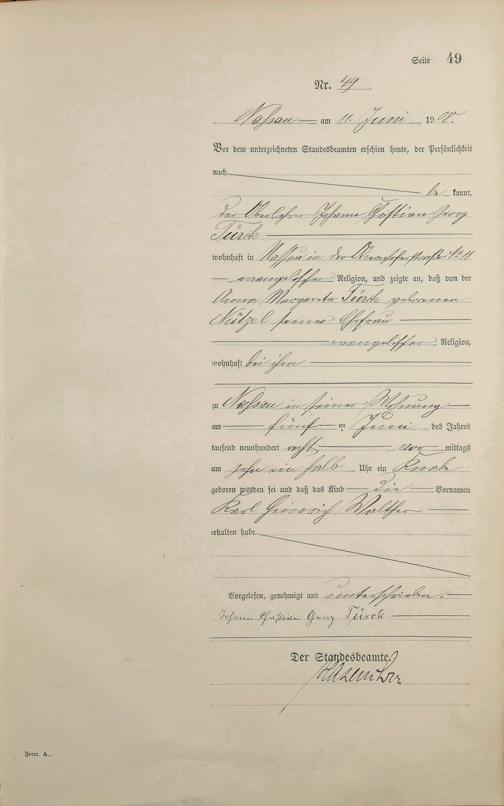 Seite 49
Nr. 49
Nassau am 11. Juni 190
Vor dem unterzeichneten Standesbeamten erschien heute, der Persönlichkeit
nach
be kannt,
der Oberlehrer Johann Christian Georg
Türck
wohnhaft in Nassau in der № 11
evangelischer Religion, und zeigte an, daß von der
Anna Margareta Türck geborenen
Nützel seiner Ehefrau
evangelischer Religion,
wohnhaft bei ihm
zu Nassau in seiner Wohnung
am fünf ten Juni des Jahres
tausend neunhundert acht vor mittags
um zehn ein halb Uhr ein Knabe
geboren worden sei und daß das Kind die Vornamen
Karl Heinrich Walther
erhalten habe.
Vorgelesen, genehmigt und unterschrieben.
Johann Christian Georg Türck
Der Standesbeamte.
Form. A.